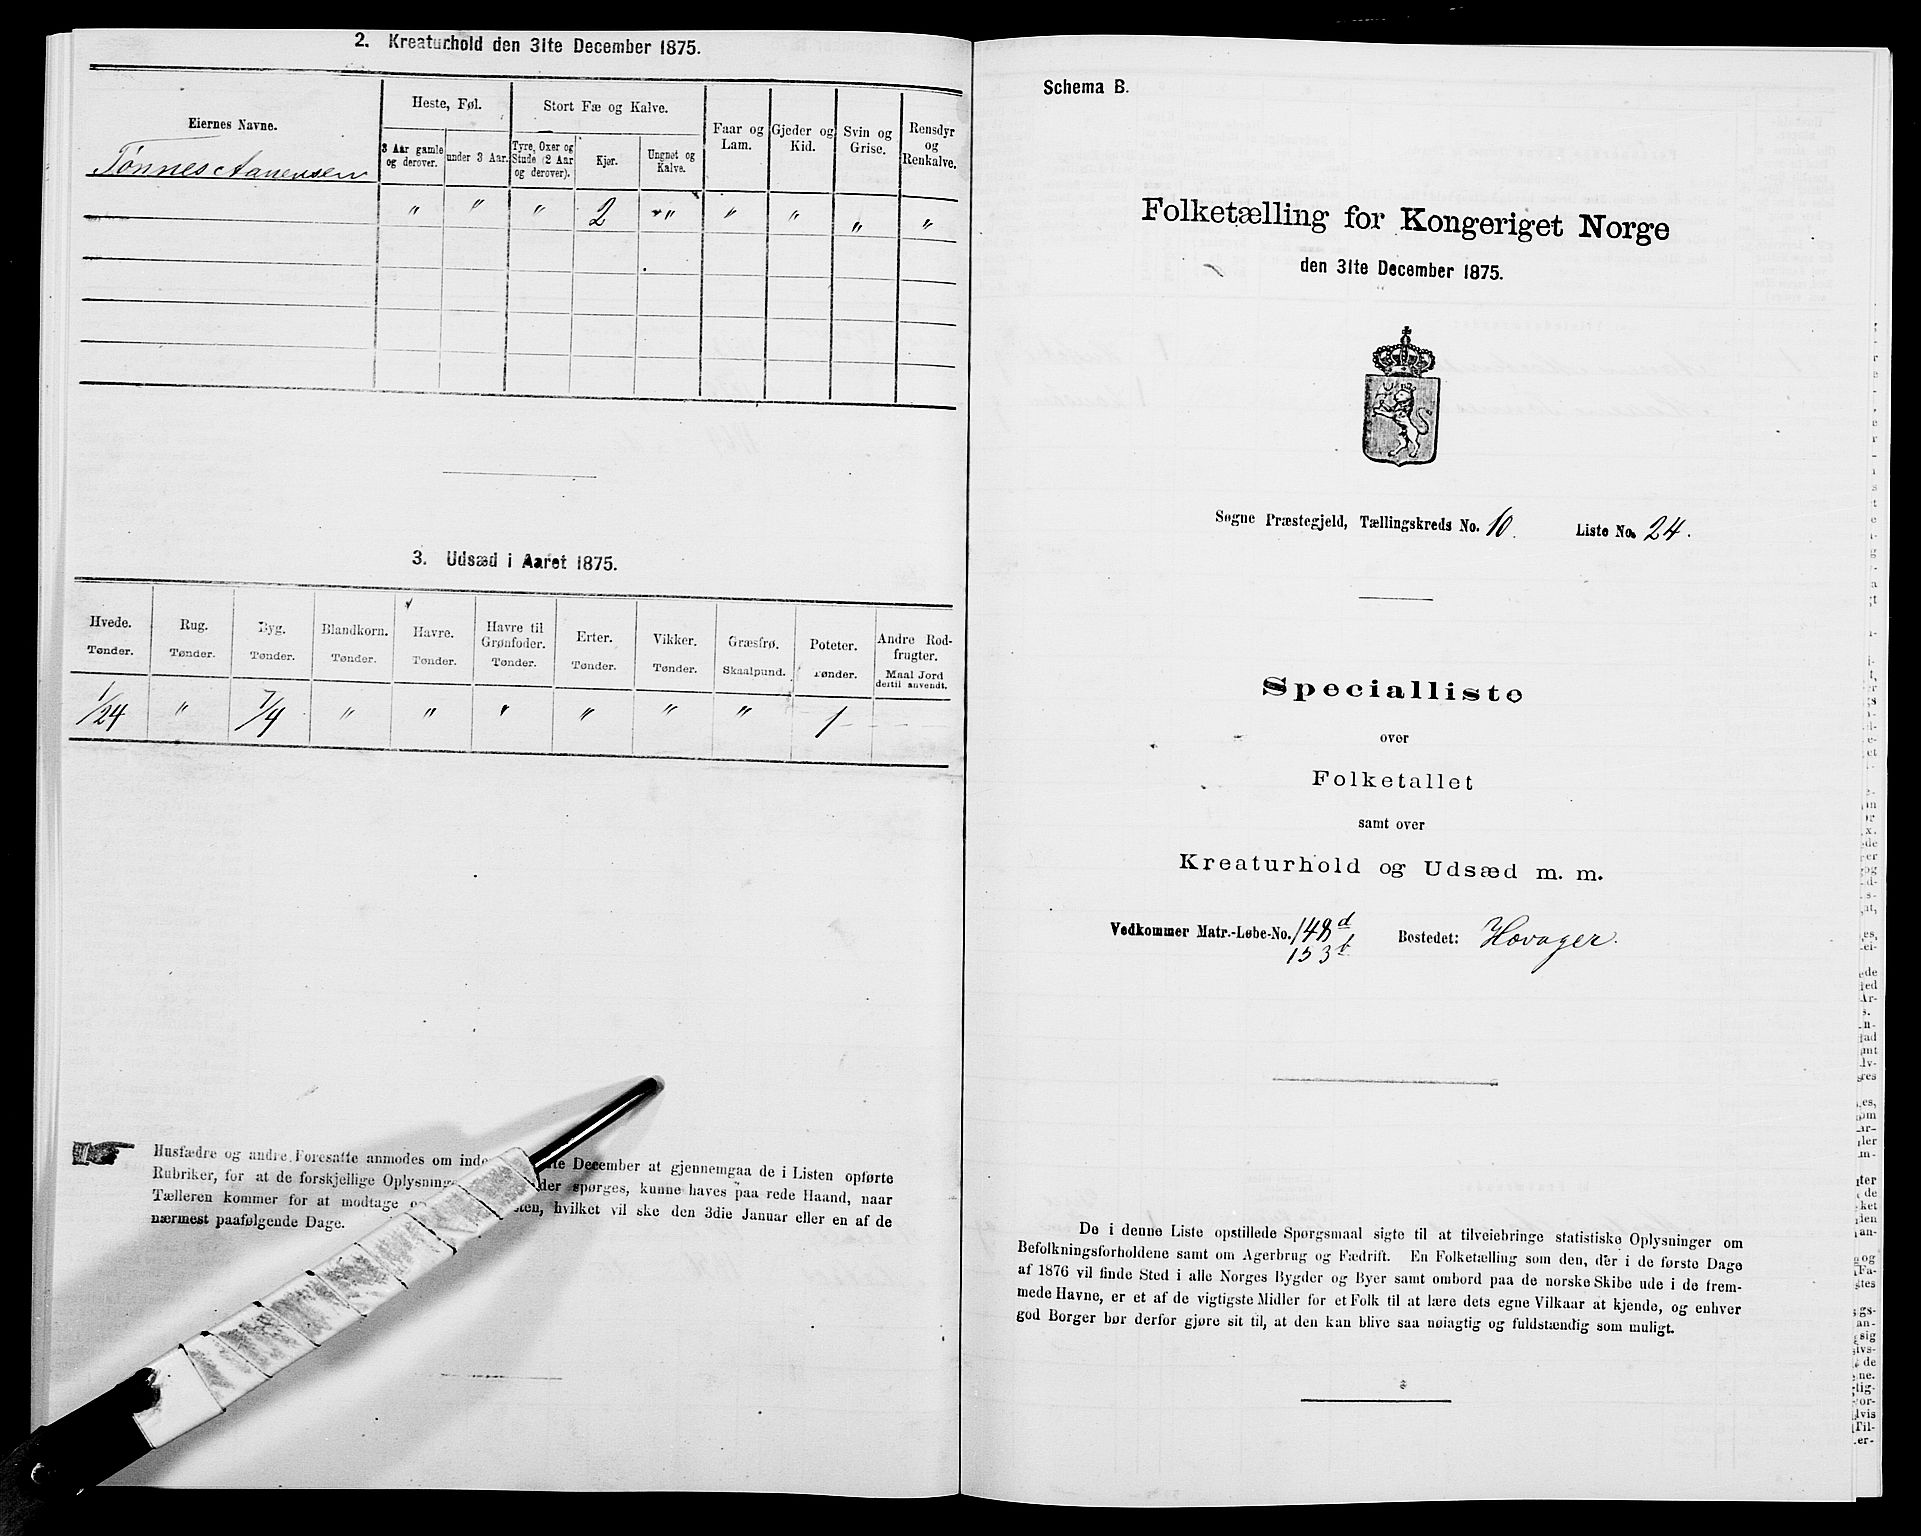 2. Kreaturhold den 31te December 1875.
Eiernes Navne.
Heste, Føl.
Stort Fæ og Kalve.
Faar og Lam.
Gjeder og Kid.
Svin og Grise.
Rensdyr og Renkalve.
3 Aar gamle og derover.
under 3 Aar.
Tyre, Oxer og Stude (2 Aar og derover).
Kjør.
Ungnøt og Kalve.
Tønnes Aanensen
" " " 2 " " " " "
3. Udsæd i Aaret 1875.
Hvede. Rug. Byg. Blandkorn. Havre. Havre til Grønfoder. Erter. Vikker. Græsfrø. Poteter. Andre Rodfrugter.
Tønder. Tønder. Tønder. Tønder. Tønder. Tønder. Tønder. Tønder. Skaalpund. Tønder. Maal Jord dertil anvendt.
1/24 " 7/4 " " " " " " 1
Husfædre og andre Foresatte anmodes om inde December at gjennemgaa de i Listen opførte
Rubriker, for at de forskjellige Oplysning der spørges, kunne haves paa rede Haand, naar
Tælleren kommer for at modtage sten, hvilket vil ske den 3die Januar eller en af de
nærmest paafølgende Dage.
Schema B.
Folketælling for Kongeriget Norge
den 31te December 1875.
Søgne Præstegjeld, Tællingskreds No. 10. Liste No. 24.
Specialliste
over
Folketallet
samt over
Kreaturhold og Udsæd m. m.
Vedkommer Matr.-Løbe-No. 148 d Bostedet: Hovager.
153 b
De i denne Liste opstillede Spørgsmaal sigte til at tilveiebringe statistiske Oplysninger om
Befolkningsforholdene samt om Agerbrug og Fædrift. En Folketælling som den, der i de første Dage
af 1876 vil finde Sted i alle Norges Bygder og Byer samt ombord paa de norske Skibe ude i de frem-
mede Havne, er et af de vigtigste Midler for et Folk til at lære dets egne Vilkaar at kjende, og enhver
god Borger bør derfor gjøre sit til, at den kan blive saa nøiagtig og fuldstændig som muligt.